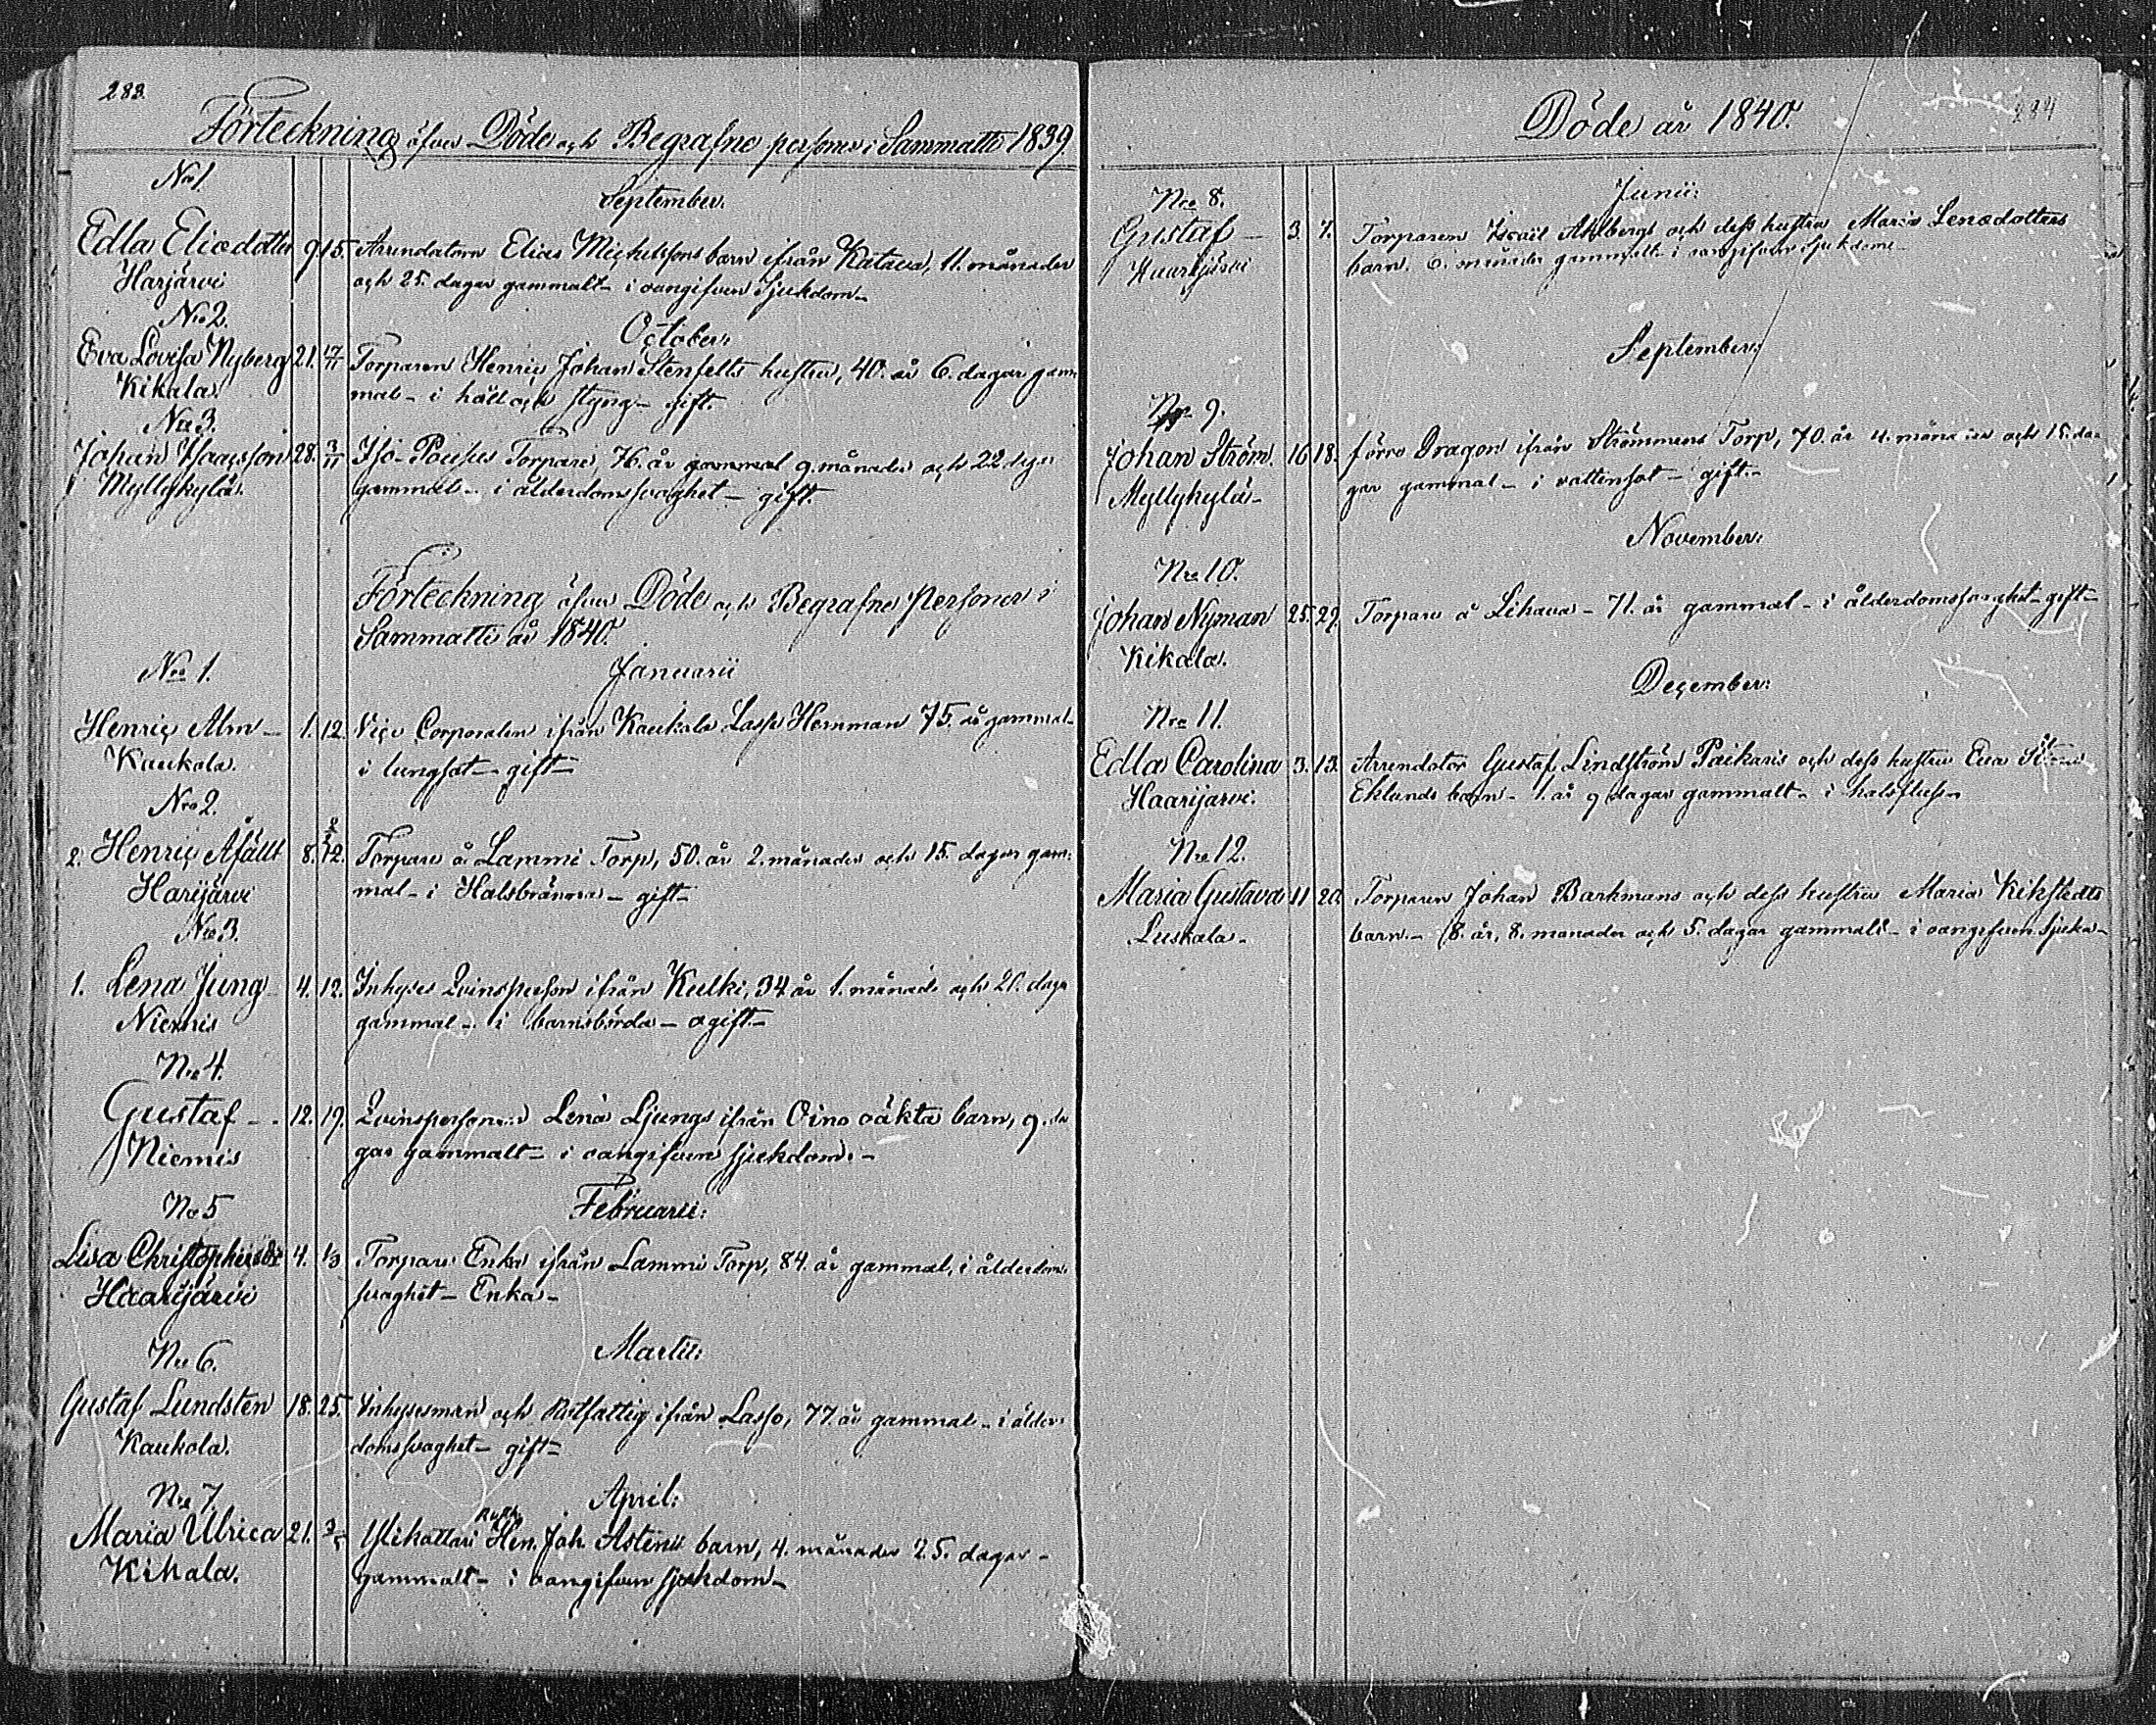 283.
Förteckning öfver Döde och Begrafne personer i Sammatti 1839
No 1.
September.
Edla Eliædotter 9. 15. Arendatorn Elias Michelssons barn ifrån Katava, 11. månader
Harjärvi och 25. dagar gammalt - i oangifven Sjukdom -
No 2.
October:
Eva Lovisa Nyberg 21. 17/11 Torparen Henric Johan Stenfelts hustru, 40. år 6. dagar gam-
Kikala. mal - i håll och styng - gift.
No 3.
Johan Isaacsson 28. 3/11 Iso-Pousus Torpare, 76. år gammal 9. månader och 22 dagar
Myllykylä. gammal - i ålderdomssvaghet - gift.
Förteckning öfver Döde och Begrafne Personer i
Sammatti år 1840.
No 1.
Januarii
Henric Alm - 1. 12. Vice Corporalen ifrån Kaukola Lasse Hemman 75. år gammal -
Kaukola. i lungsot - gift -
No 2.
2. Henric Åfält 8. 2/12. Torpare å Lammi Torp, 50. år 2. månader och 15. dagar gam-
Harijärvi mal - i Halsbränna - gift -
No 3.
1. Lena Jung 4. 12. Inhyses Qvinsperson ifrån Kulki, 34 år 1. månad och 20. dagar
Niemis gammal - i barnsbörda - ogift -
No 4.
Gustaf - 12. 19. Qvinspersonen Lena Ljungs ifrån Oino oäkta barn, 9. da
Niemis gar gammalt - i oangifven sjukdom. -
No 5
Februarii:
Lisa Christophersdr 4. 1/3 Torpare Enka ifrån Lammi Torp, 84. år gammal, i ålderdoms
Haarijärvi svaghet - Enka -
No 6.
Martii:
Gustaf Lundsten 18. 25. Inhysesman och Rotfattig ifrån Lasso, 77. år gammal - i ålder-
Kaukola. domssvaghet - gift -
No 7.
April:
Maria Ulrica 21. 3/5 Ylikattari Hen. Joh. Astens barn, 4. månader 25. dagar -
Kikala. gammalt - i oangifven sjukdom -
Döde år 1840. 284
No 8.
Junii:
Gustaf - 3. 7. Torparen Israël Ahlbergs och dess hustru Maria Lenædotters
Haarijärvi barn. 6. månader gammalt i oangifven sjukdom -
September:
No 9.
Johan Ström. 16 18. förre Dragon ifrån Strömmens Torp, 70. år 4. månader och 15. da-
Myllykylä - gar gammal - i vattensot - gift. -
November.
No 10.
Johan Nyman 25. 29. Torpare å Lihava - 71. år gammal - i ålderdomssvaghet - gift -
Kikala.
December:
No 11.
Edla Carolina 3. 13. Arrendator Gustaf Lindström Paikaris och dess hustru Eva
Haarijarvi. Eklunds barn - 1. år 9 dagar gammalt - i halsfluss -
No 12.
Maria Gustava 11 20. Torparen Johan Barkmans och dess hustru Maria Kikstedts
Luskala - barn - 8. år, 8. månader och 5. dagar gammalt - i oangifven Sjukd-